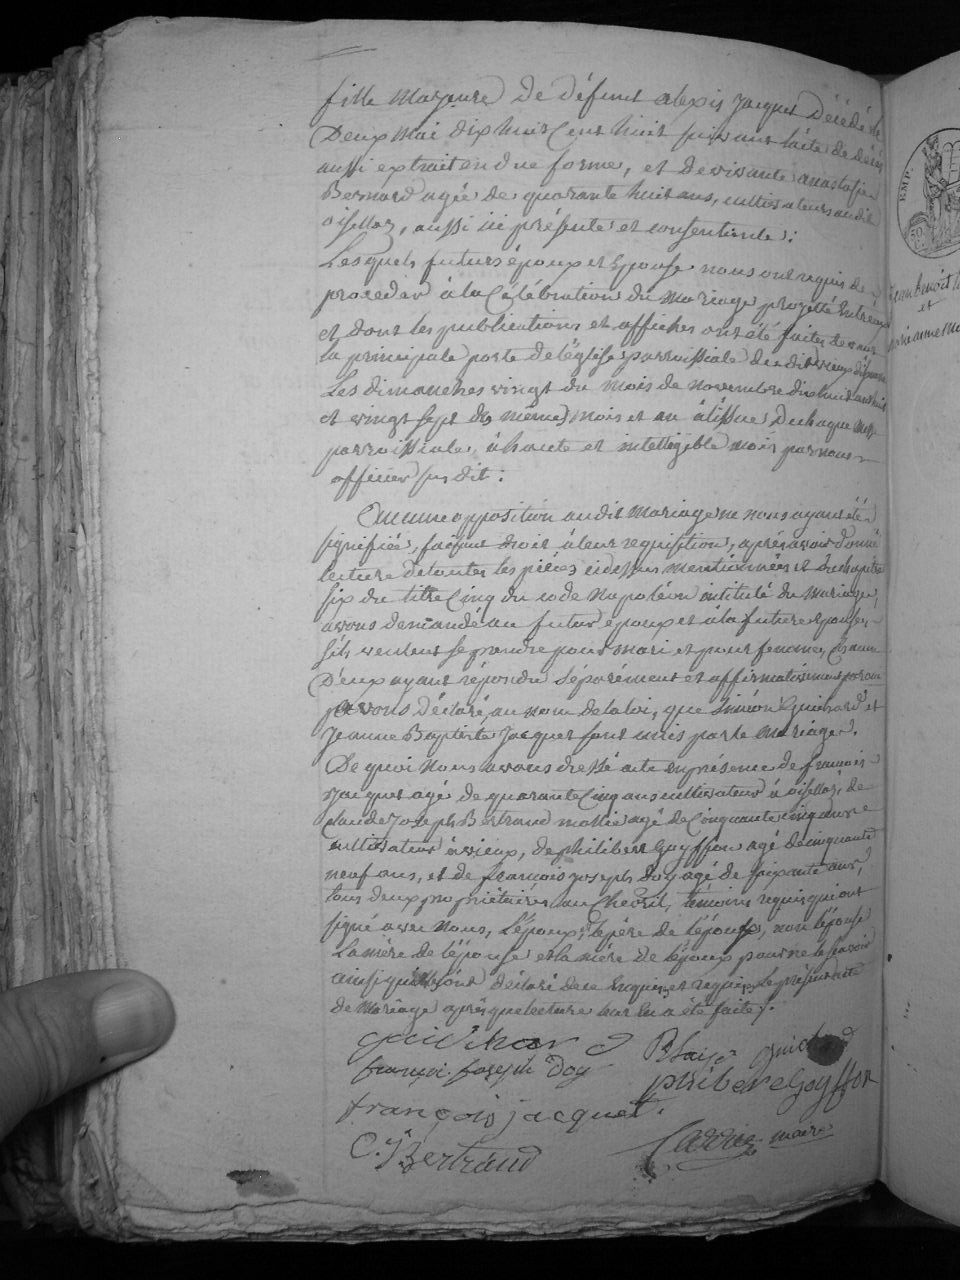 fille majeure de défunt alexis Jacquet Décédé le
Deux mai dix huit cent huit suivant l'acte de décès
aussi extrait en due forme, et de vivante anastasie
Bernard agée de quarante huit ans, cultivateurs audit
oisellaz, aussi ici présente et consentente ;
Lesquels futurs époux et Epouse nous ont requis de
proceder à la Célébration du Mariage projetté Entr'eux
et dont les publications et affiches ont été faites devant
la principale porte de l'église parroissiale dudit vieux
Les dimanches vingt du mois de novembre dix huit cent huit
et vingt sept du même mois et an à l'issue de chaque Messe
parroissiale, à haute et intelligible voix par nous
officier susdit ;
Aucune opposition audit Mariage ne nous ayant été
signifiée, faisant droit à leur requisition, après avoir donné
lecture de toutes les pièces cidessus mentionnées et du chapitre
six du titre Cinq du code Napoléon intitulé du Mariage,
avons demandé au futur époux et à la future Epouse,
s'ils veulent se prendre pour mari et pour femme, Chacun
D'eux ayant répondu séparément et affirmativement
avons déclaré, au nom de la loi, que Siméon Guichard et
Jeanne Baptiste Jacquet sont unis par le Mariage.
De quoi Nous avons dressé acte en présence de francois
Jacquet agé de quarante Cinq ans cultivateur à oisellaz, de
Claude Joseph Bertrand agé de Cinquante cinq ans
cultivateur à vieux, de philibert Goyffon agé de cinquante
neuf ans, et de francois joseph doy agé de soixante ans,
tous deux propriétaires au Chevril, témoins requis qui ont
signé avec Nous, L'époux, le père de l'époux, non l'épouse
La mère de l'épouse et la mère de l'époux pour ne le savoir
ainsi qu'ils ont déclaré de ce Enquis et requis, le présent acte
de Mariage après que lecture leur En a été faite.
Guichard Blaise Guichard
françoi joseph Doy philibert Goyffon
françois jacquet.
C. J. Bertrand maire
EMP.
et